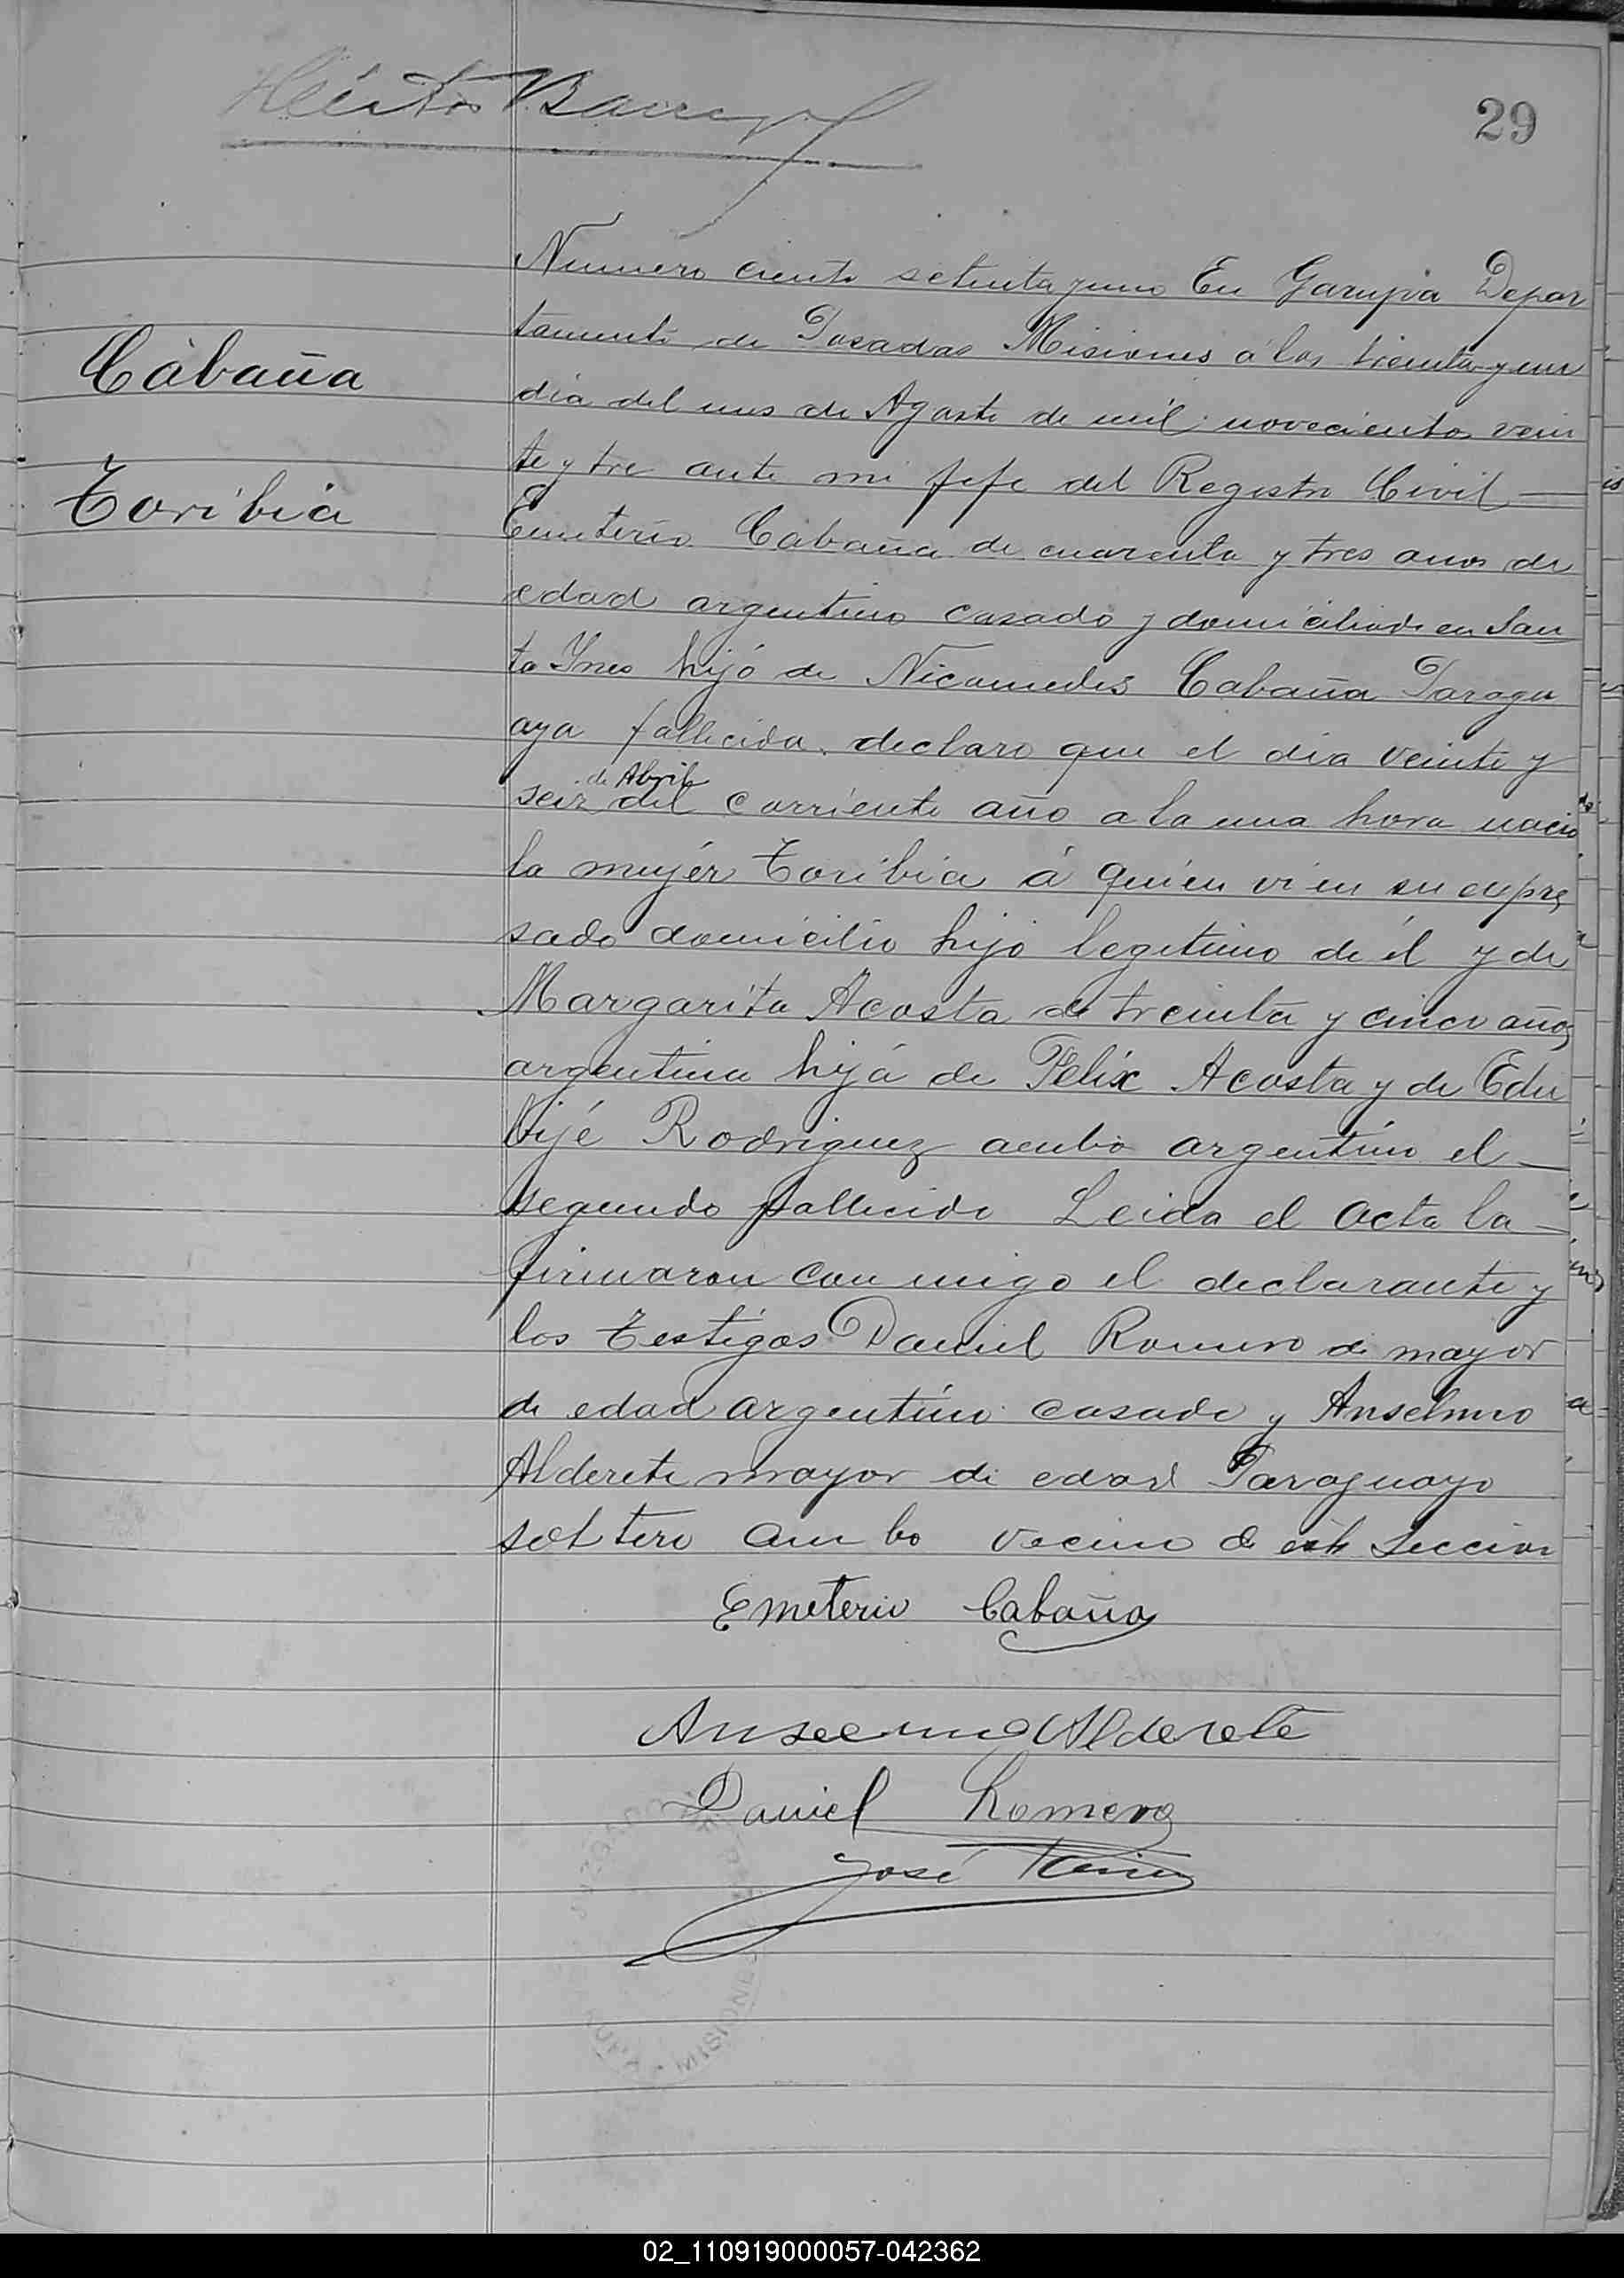 29
Numero ciento setenta y uno En Garupa Depar
tamento de Posadas Misiones á los treinta y un
Cabaña
dia del mes de Agosto de mil novecientos vein
te y tre ante mi jefe del Registro Civil —
Toribia
Emeterio Cabaña de cuarenta y tres anos de
edad argentino casado y domiciliado en San
ta Ynes hijó de Nicomedes Cabaña Paragu
aya fallecida. declaro que el dia veinte y
de Abril
seiz del corriente año a la una hora nacio
la mujér Toribia á quien vi en su expre
sado domicilio hijo legitimo de él y de
Margarita Acosta de treinta y cinco años
argentina hija de Felix Acosta y de Edu
vijé Rodriguez ambo argentino el —
segundo fallecido Leida el acta la —
firmaron con migo el declarante y
los testigos Daniel Romero de mayor
de edad argentino casado y Anselmo
Alderete mayor de edad Paraguayo
soltero ambo vecino de este Seccion
Emeterio Cabaña
Anselmo Alderete
Daniel Romero
José
MISIONES
02_110919000057-042362